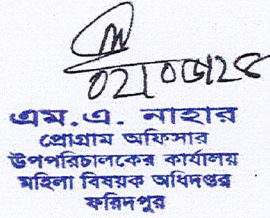 এম.এ. নাহার
প্রোগ্রাম অফিসার
উপপরিচালকের কার্যালয়
মহিলা বিষয়ক অধিদপ্তর
ফরিদপুর